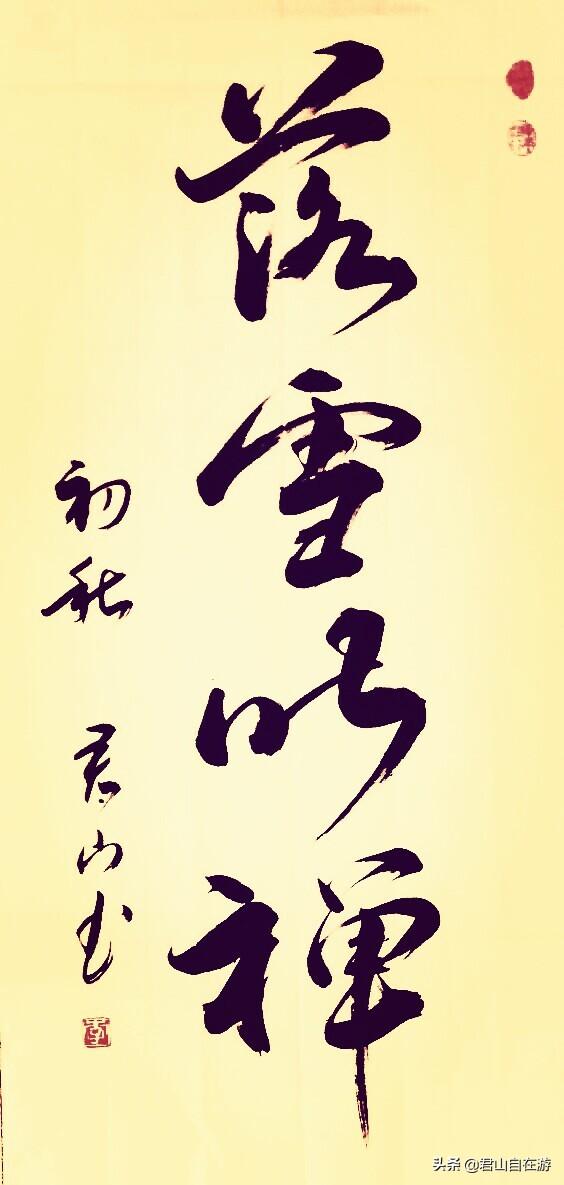 落雪听禅
初秋 君山书
头条 @君山自在游